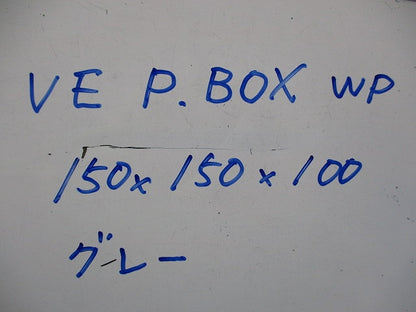 VE P.BOX WP
150x 150 x 100
グレー